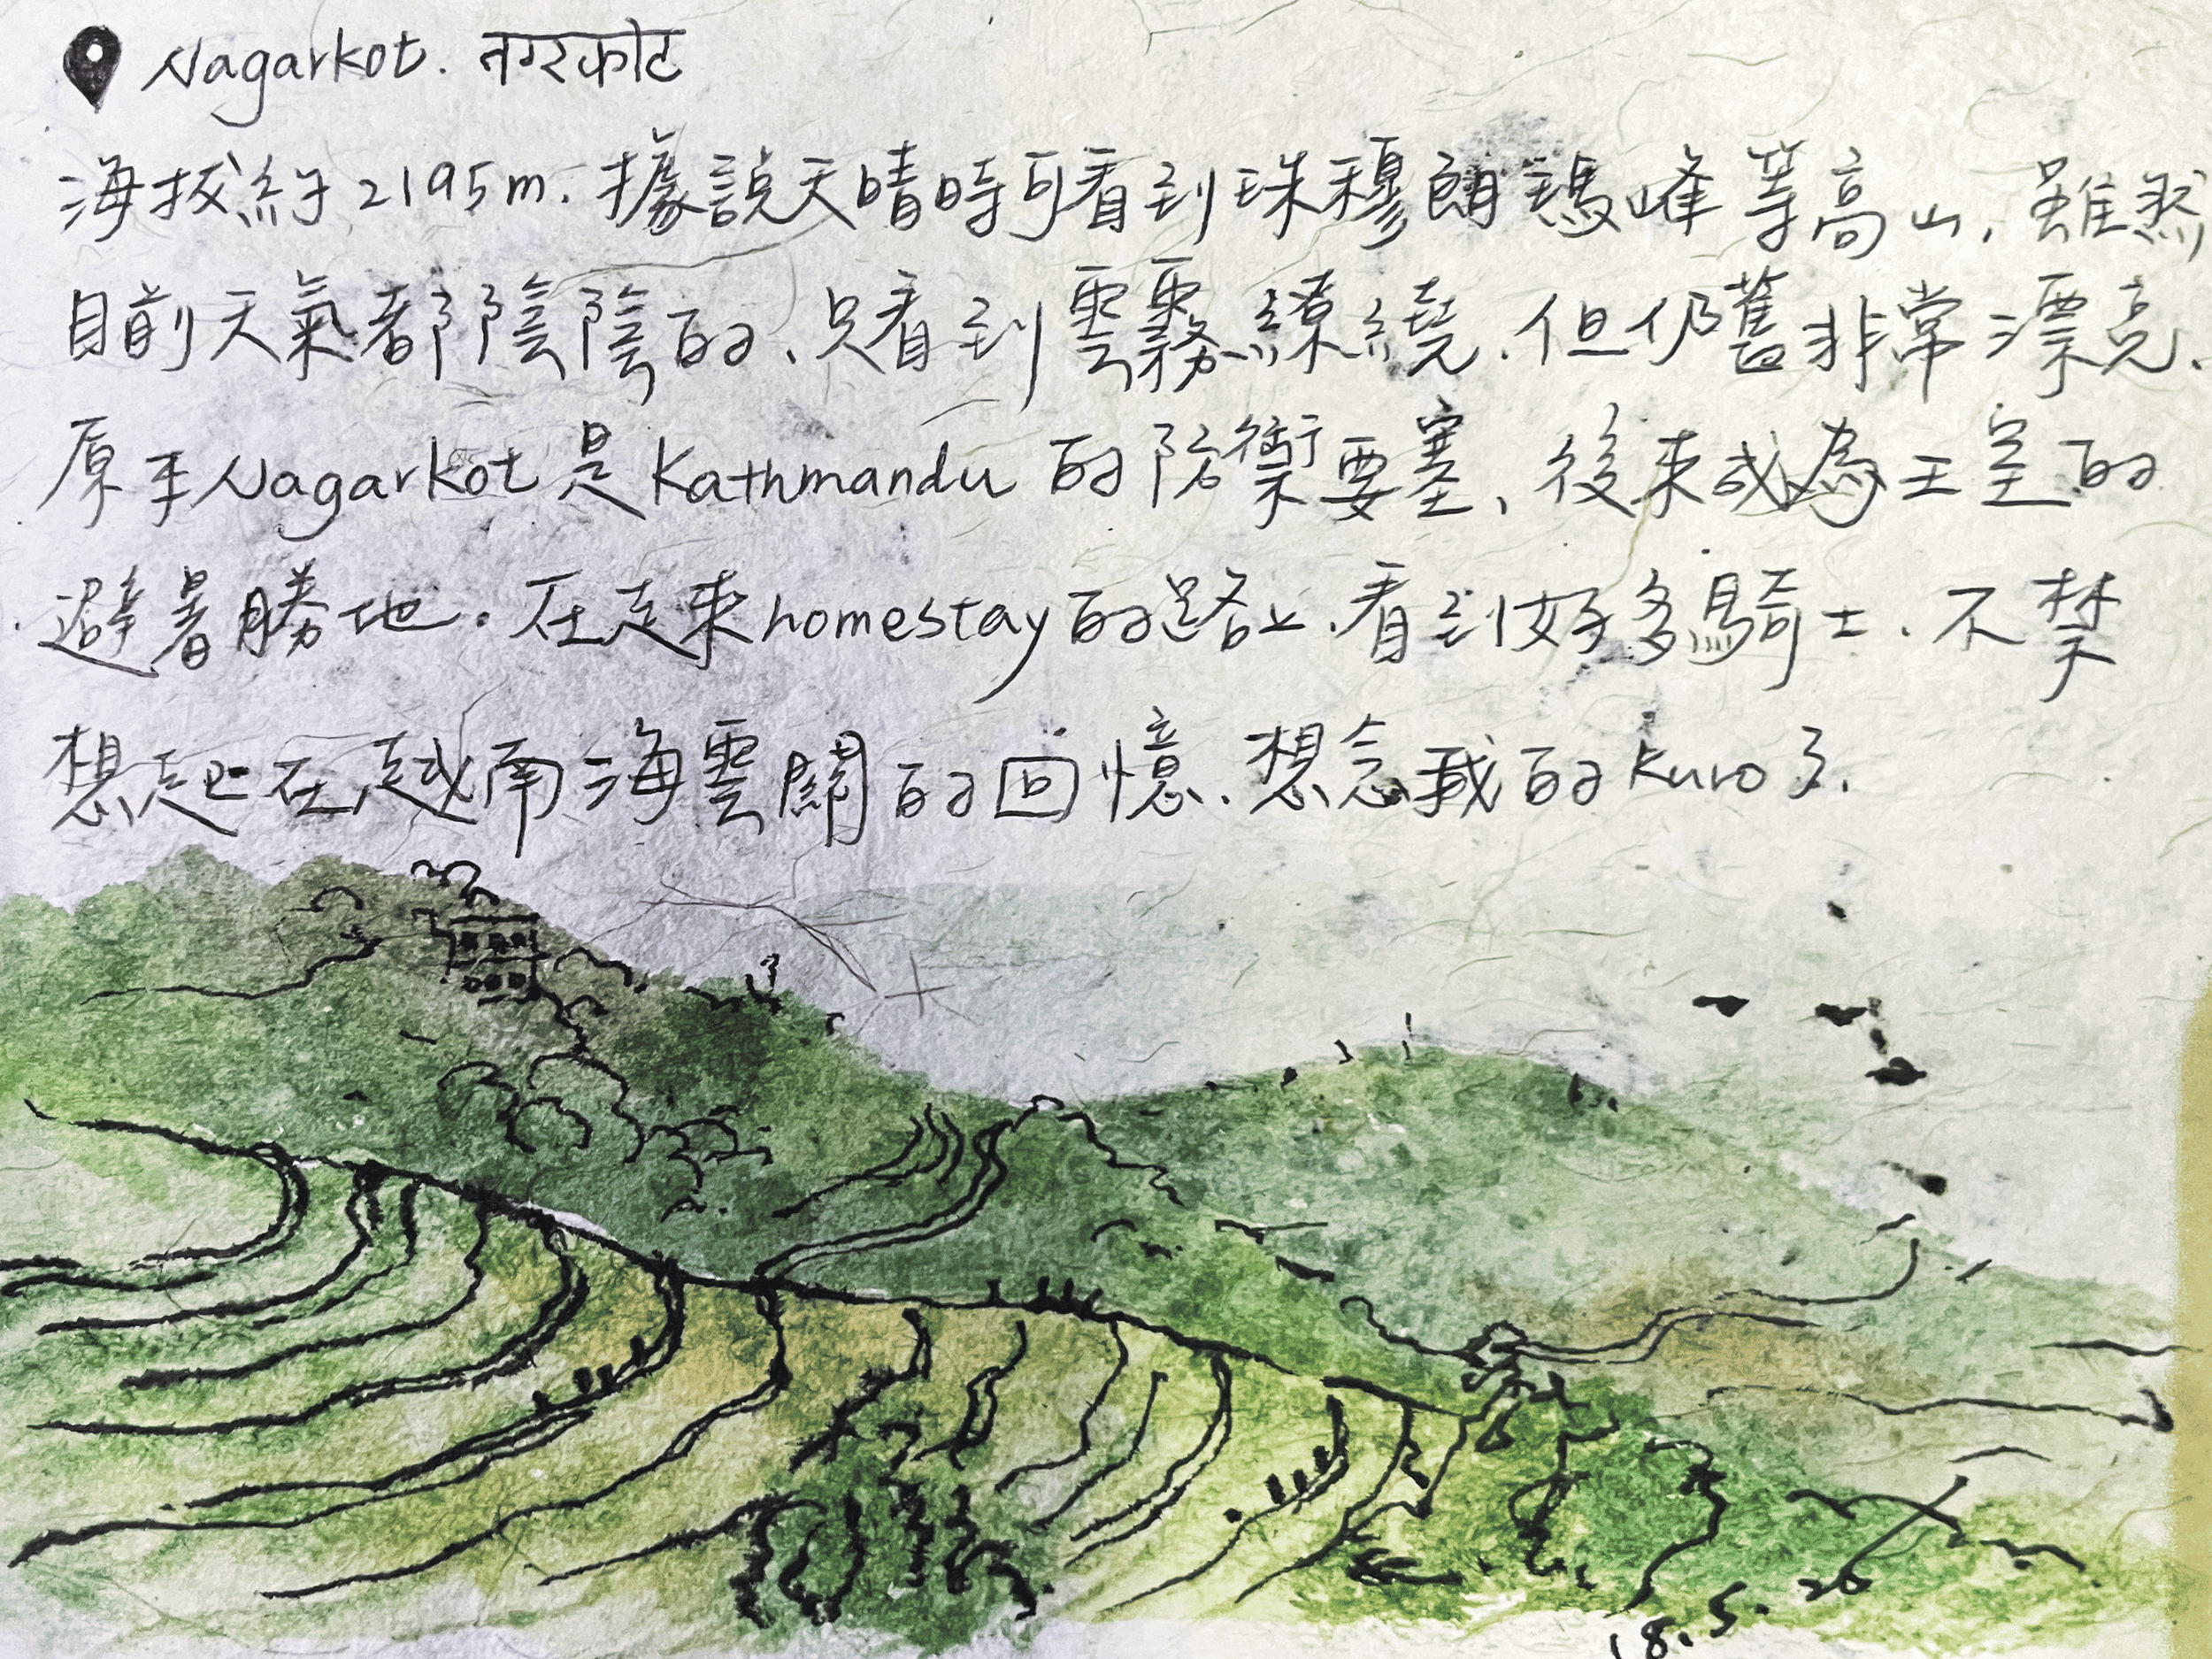 Nagarkot. नगरकोट
海拔約2195m. 據說天晴時可看到珠穆朗瑪峰等高山, 雖然
目前天氣都陰陰的、只看到雲霧繚繞. 但仍舊非常漂亮.
原本Nagarkot是Kathmandu的防衛要塞、後來成為王室的
避暑勝地. 在走來homestay的路上. 看到好多騎士. 不禁
想起在越南海雲關的回憶. 想念我的Kuro了.
18.5.20